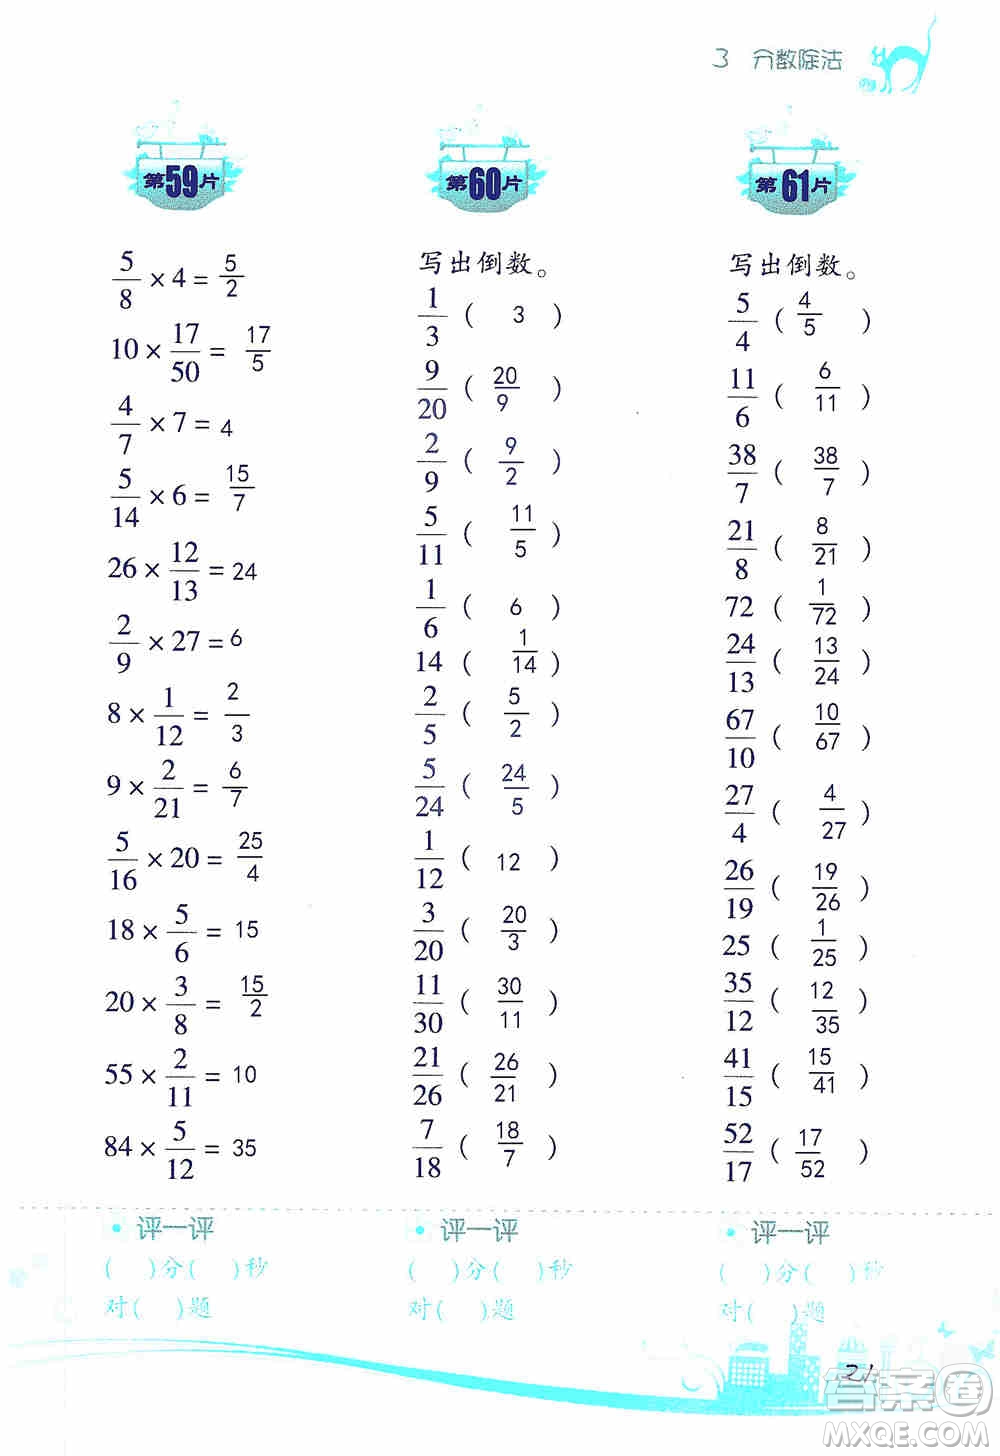 3 分数除法
第59片
5/8 × 4 = 5/2
10 × 17/50 = 17/5
4/7 × 7 = 4
5/14 × 6 = 15/7
26 × 12/13 = 24
2/9 × 27 = 6
8 × 1/12 = 2/3
9 × 2/21 = 6/7
5/16 × 20 = 25/4
18 × 5/6 = 15
20 × 3/8 = 15/2
55 × 2/11 = 10
84 × 5/12 = 35
• 评一评
( )分( )秒
对( )题
第60片
写出倒数。
1/3 ( 3 )
9/20 ( 20/9 )
2/9 ( 9/2 )
5/11 ( 11/5 )
1/6 ( 6 )
14 ( 1/14 )
2/5 ( 5/2 )
5/24 ( 24/5 )
1/12 ( 12 )
3/20 ( 20/3 )
11/30 ( 30/11 )
21/26 ( 26/21 )
7/18 ( 18/7 )
• 评一评
( )分( )秒
对( )题
第61片
写出倒数。
5/4 ( 4/5 )
11/6 ( 6/11 )
38/7 ( 38/7 )
21/8 ( 8/21 )
72 ( 1/72 )
24/13 ( 13/24 )
67/10 ( 10/67 )
27/4 ( 4/27 )
26/19 ( 19/26 )
25 ( 1/25 )
35/12 ( 12/35 )
41/15 ( 15/41 )
52/17 ( 17/52 )
• 评一评
( )分( )秒
对( )题
21
答案卷
MXQE.COM